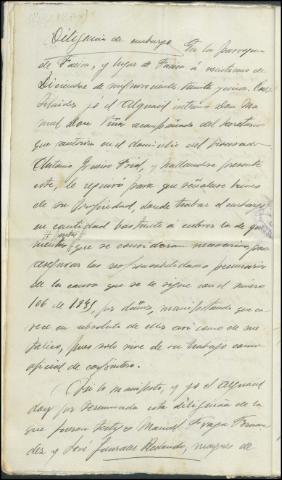 Diligencia de embargo. En la parroquia
de      , y lugar de      a veintiuno de
Diciembre de mil novecientos treinta y cinco. Cons-
tituidos yo el Alguacil interino Don Ma-
nuel       Viña acompañado del Secretario
que autoriza en el domicilio del procesado
Antonio           , y hallándose presente
este, le requirió para que señalase bienes
de su propiedad, donde trabar el embargo
en cantidad bastante a cubrir la de qui-
nientas pesetas, que se consideran necesarias para
asegurar las responsabilidades pecuniarias
de la causa que se le sigue con el número
106 de 1935, por daños, manifestando que ca-
rece en absoluto de ellos así como de me-
tálico, pues solo vive de su trabajo como
oficial de cantero.
Así lo manifestó, y yo el Alguacil
doy por terminada esta diligencia de la
que fueron testigos Manuel        Fernan-
dez y José González Redondo, mayores de